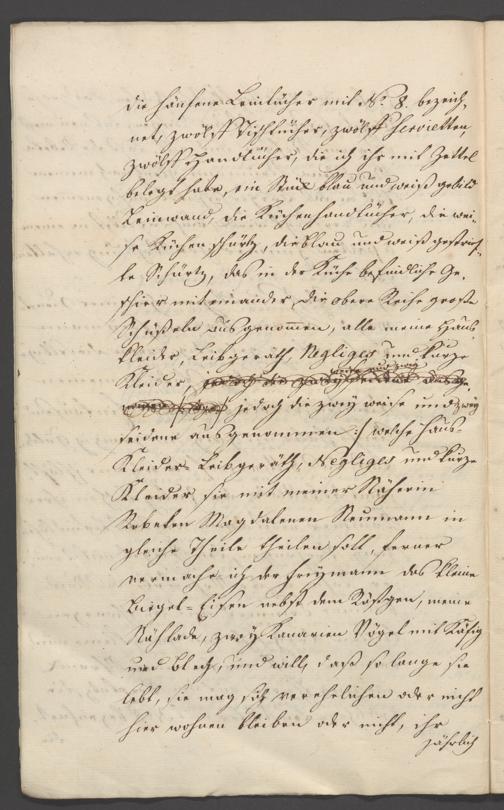 die hänfene Leintücher mit N.º 8. bezeich-
net, zwölff Tischtücher, zwölff Servietten
zwölff Handtücher, die ich ihr mit Zettel
belegt habe, ein Stück blau und weiß gebild
Leinwand, die Küchenhandtücher, die wei-
ße Küchen schürtz, die blau und weiß gestreif-
te Schürtz, das in der Küche befindliche Ge-
schier mit einander, die obere Reihe große
Schüßeln ausgenommen, alle meine Haus
kleider, Leibgeräth, Negliges und kurze
Kleider, jedoch die zwey weise und zwey
seidene ausgenommen :/ welche Haus-
Kleider Leibgeräth, Negliges und kurze
Kleider sie mit meiner Näherin
Magdalenen Neumann in
gleiche Theile theilen soll, ferner
vermache ich der Freymann das kleine
Biegel-Eisen nebst dem Rößgen, meine
Nählade, zwey Kanarien Vögel mit Käfig
und Blech, und will, daß so lange sie
lebt, sie mag sich verehelichen oder nicht
hier wohnen bleiben oder nicht, ihr
jährlich